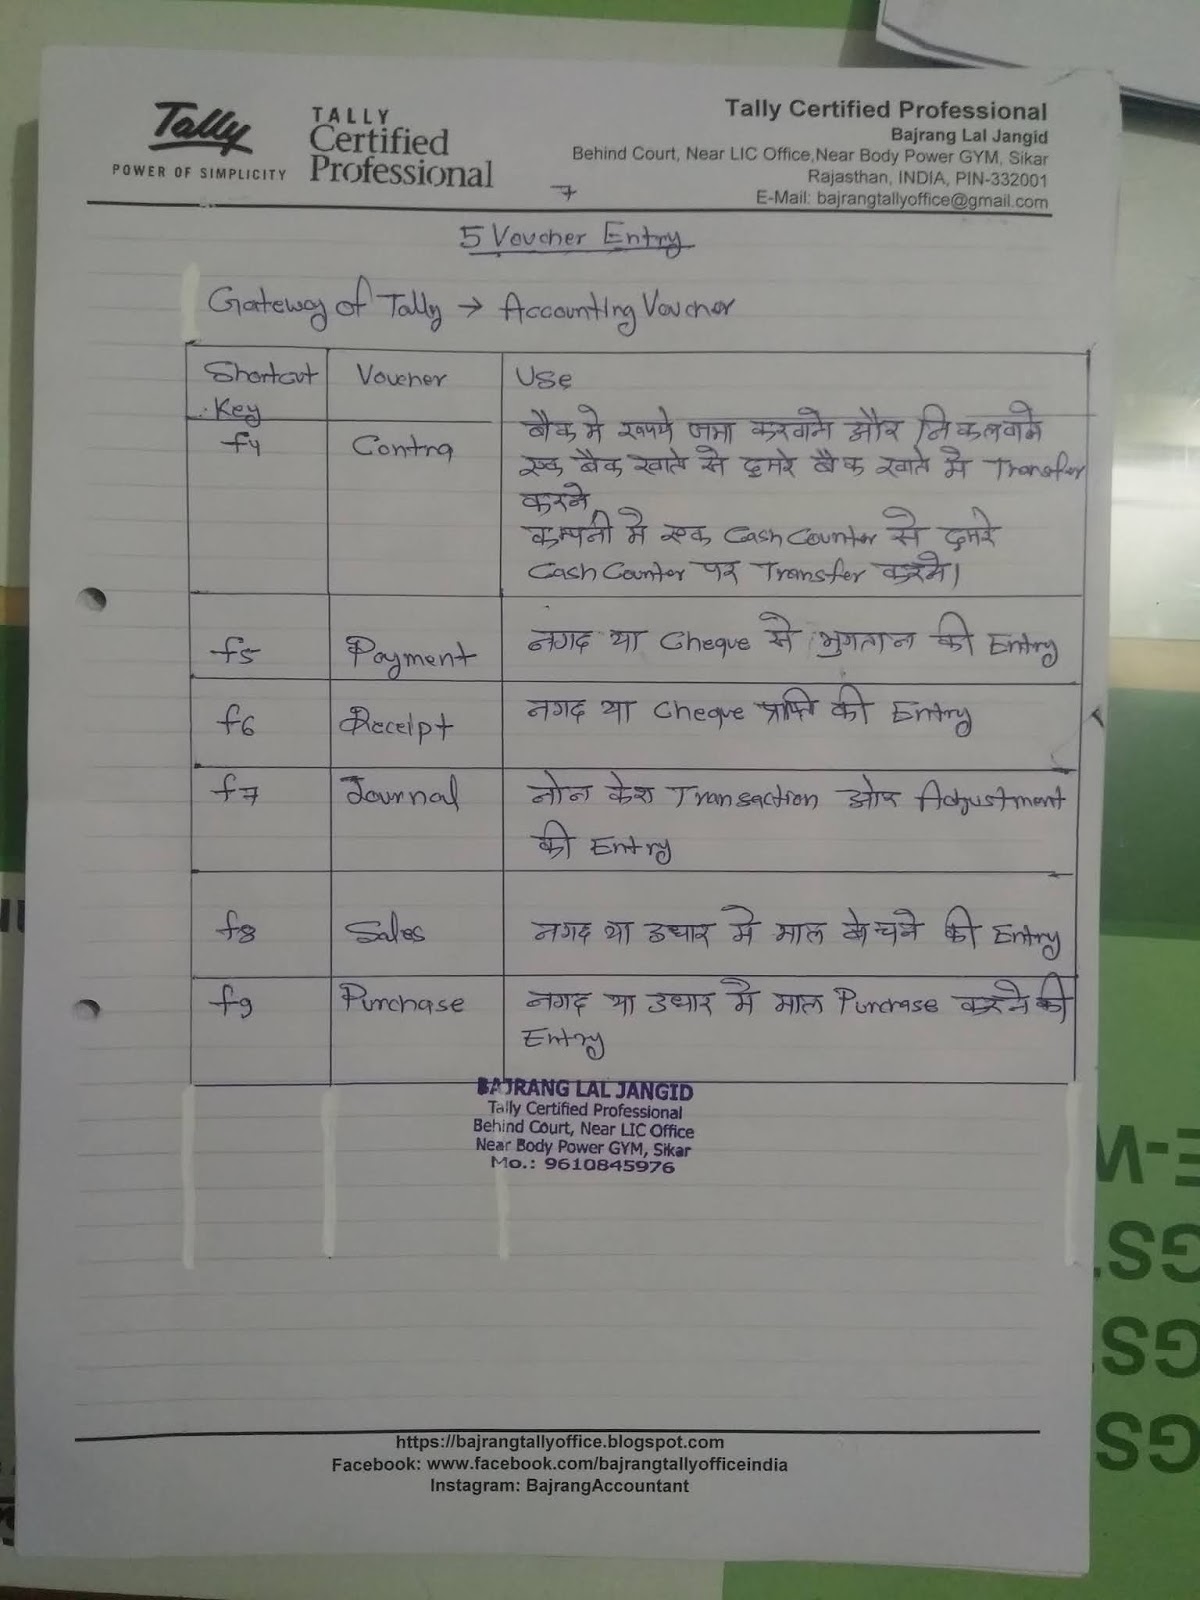 Tally
POWER OF SIMPLICITY
TALLY
Certified
Professional
Tally Certified Professional
Bajrang Lal Jangid
Behind Court, Near LIC Office,Near Body Power GYM, Sikar
Rajasthan, INDIA, PIN-332001
E-Mail: bajrangtallyoffice@gmail.com
7
5 Voucher Entry
Gateway of Tally → Accounting Voucher
Shortcut Key Voucher Use
f4 Contra बैंक मे रूपये जमा करवाने और निकलवाने
एक बैंक खाते से दुसरे बैंक खाते मे Transfer
करने
कम्पनी मे एक Cash Counter से दुसरे
Cash Counter पर Transfer करने।
f5 Payment नगद या Cheque से भुगतान की Entry
f6 Receipt नगद या Cheque प्राप्ति की Entry
f7 Journal नोन केश Transaction ओर Adjustment
की Entry
f8 Sales नगद या उधार मे माल बेचने की Entry
f9 Purchase नगद या उधार मे माल Purchase करने की
Entry
BAJRANG LAL JANGID
Tally Certified Professional
Behind Court, Near LIC Office
Near Body Power GYM, Sikar
Mo.: 9610845976
https://bajrangtallyoffice.blogspot.com
Facebook: www.facebook.com/bajrangtallyofficeindia
Instagram: BajrangAccountant